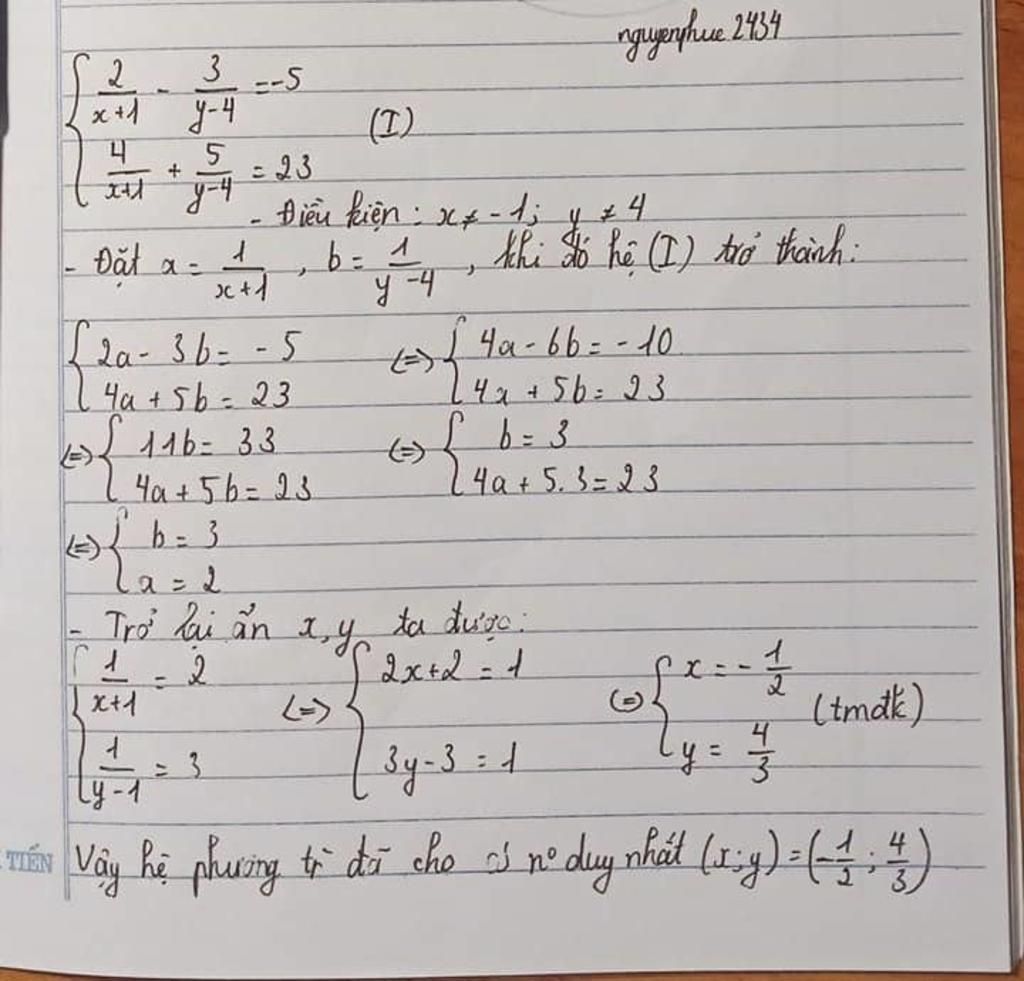 nguyenphuc2434
{ 2/(x+1) - 3/(y-4) = -5
{ 4/(x+1) + 5/(y-4) = 23 (I)
- Điều kiện: x ≠ -1; y ≠ 4
- Đặt a = 1/(x+1), b = 1/(y-4), khi đó hệ (I) trở thành:
{ 2a - 3b = -5 (=) { 4a - 6b = -10
{ 4a + 5b = 23 { 4a + 5b = 23
(=) { 11b = 33 (=) { b = 3
{ 4a + 5b = 23 { 4a + 5.3 = 23
(=) { b = 3
{ a = 2
- Trở lại ẩn x, y ta được:
{ 1/(x+1) = 2 (=) { 2x+2 = 1 (=) { x = -1/2 (tmđk)
{ 1/(y-1) = 3 { 3y-3 = 1 { y = 4/3
TIẾN
Vậy hệ phương trì đã cho có nº duy nhất (x;y) = (-1/2; 4/3)